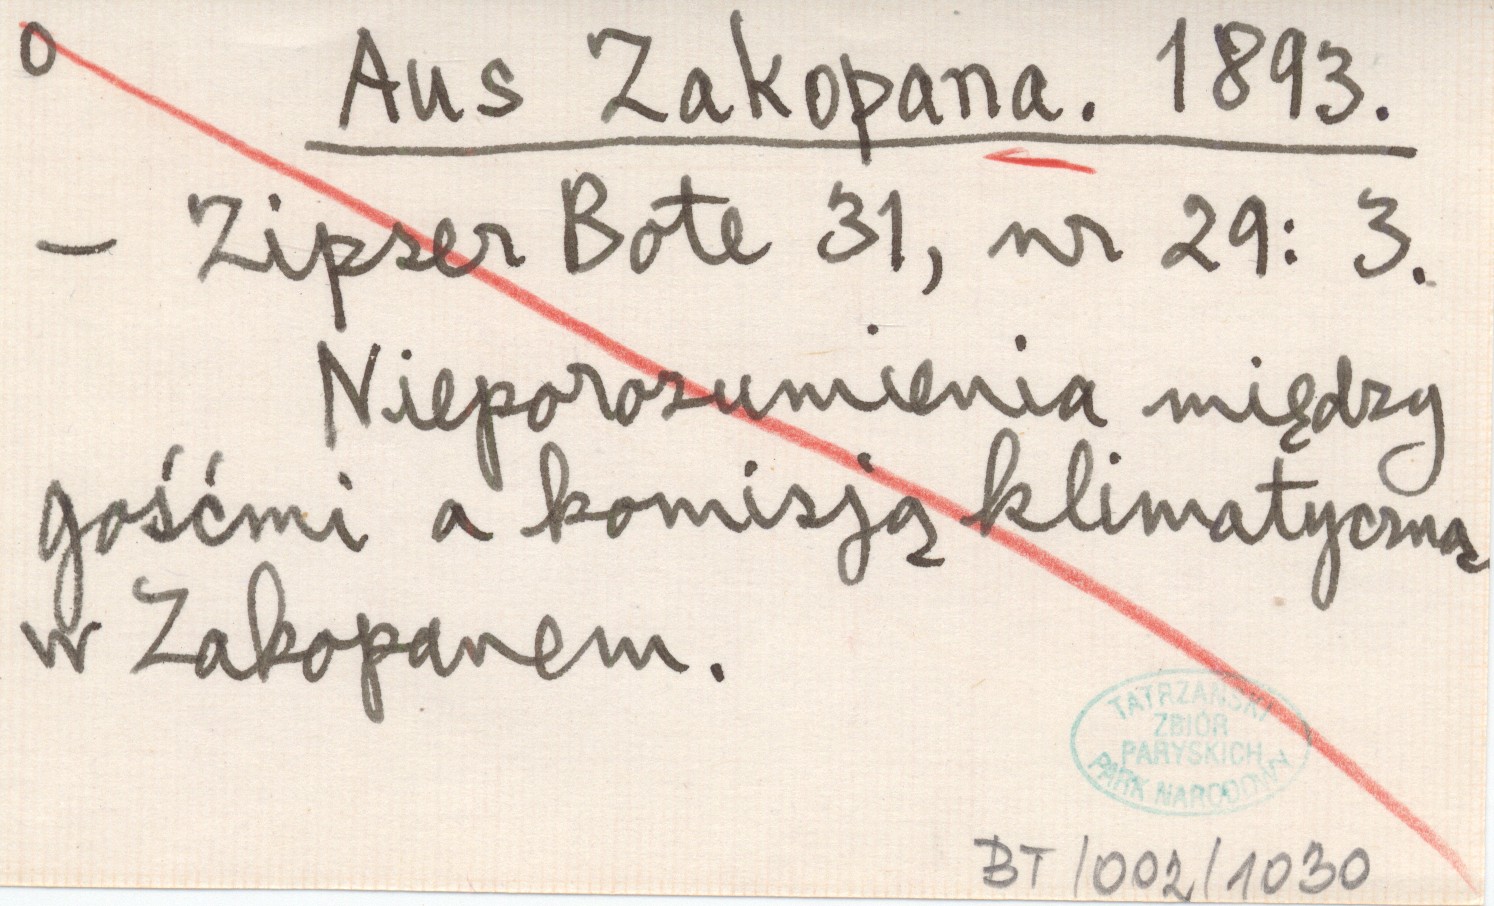 o
Aus Zakopana. 1893.
– Zipser Bote 31, nr 29: 3.
Nieporozumienia między
gośćmi a komisją klimatyczną
w Zakopanem.
TATRZAŃSKI
ZBIÓR
PARYSKICH
PARK NARODOWY
BT/002/1030